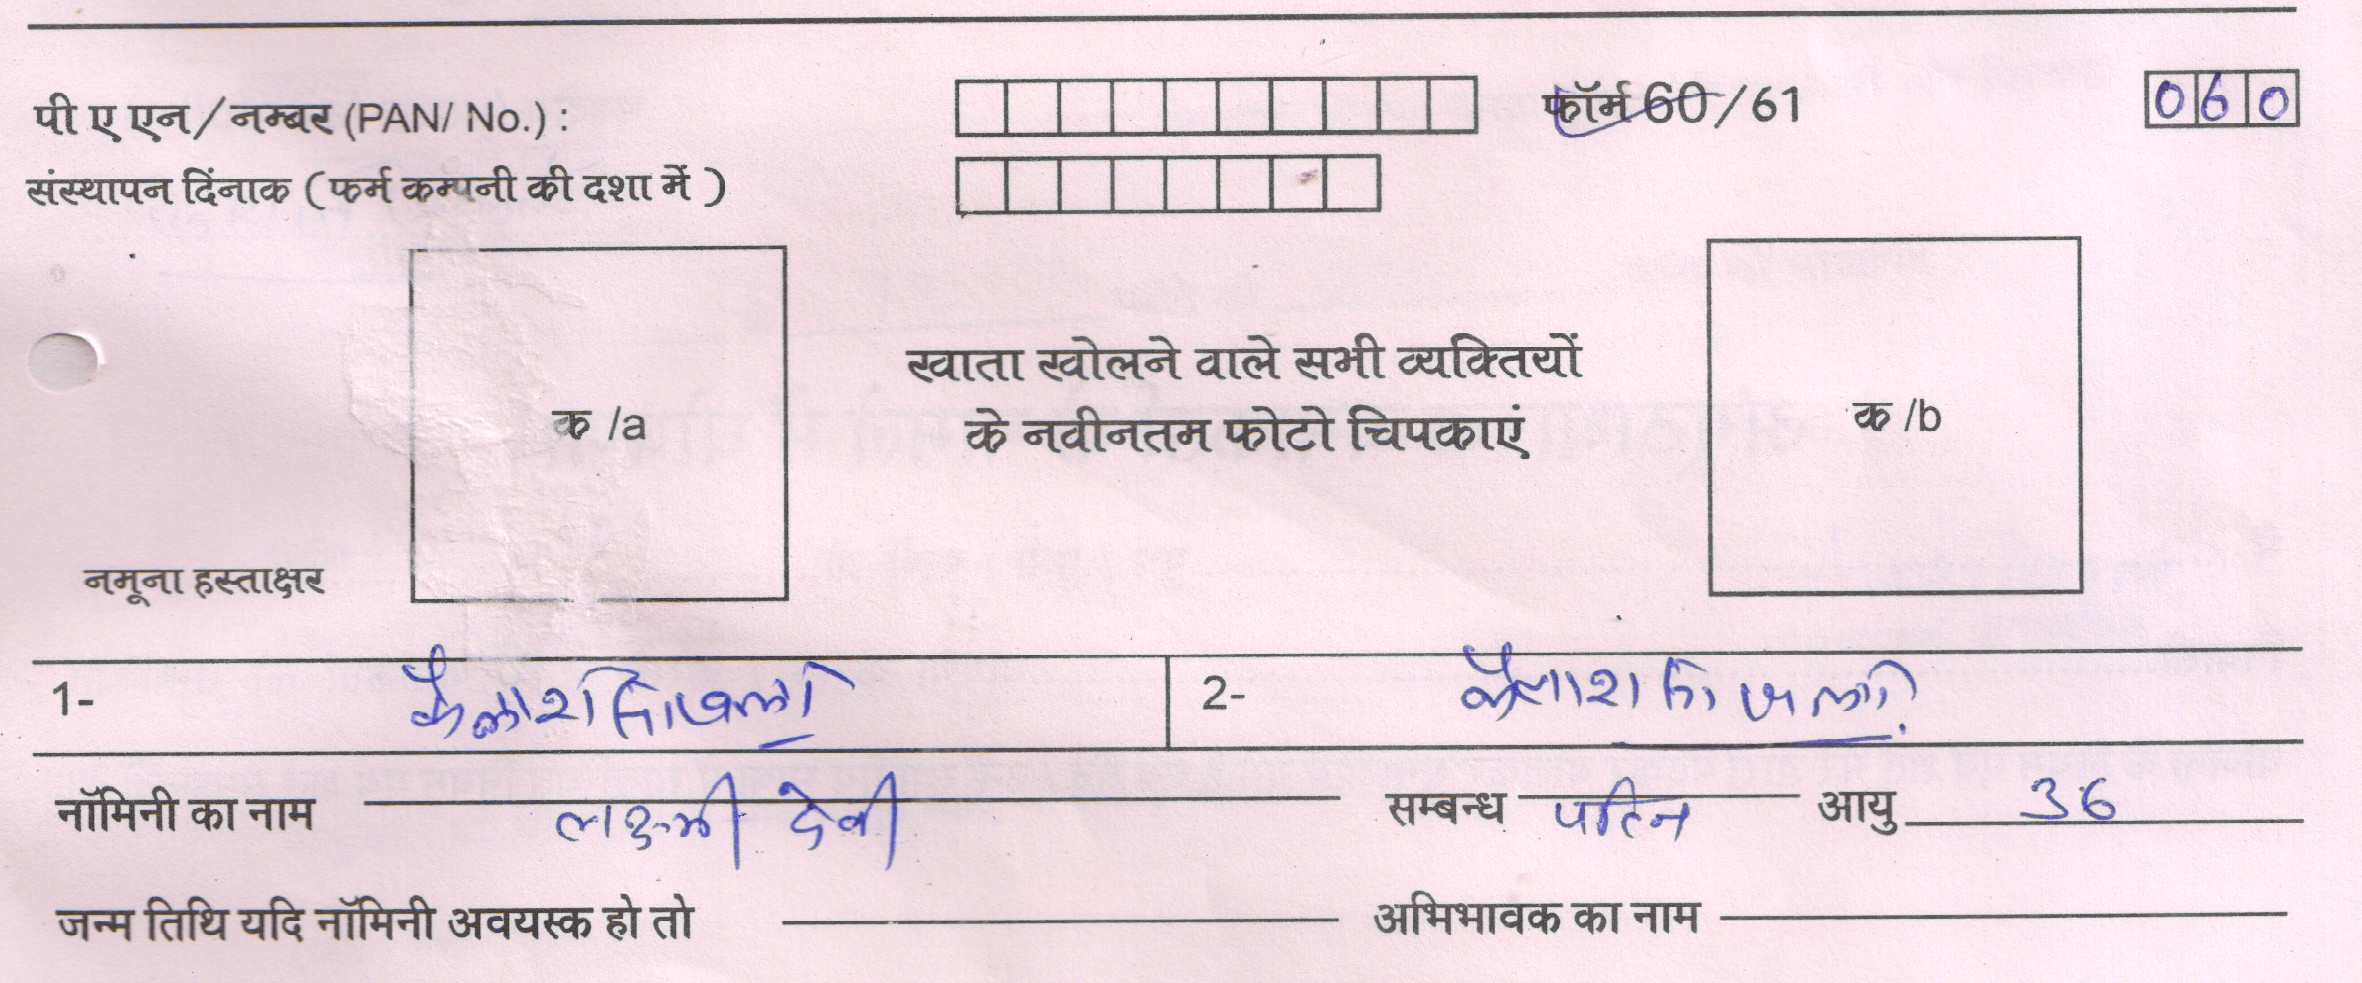 पी ए एन/नम्बर (PAN/ No.) : फॉर्म 60/61 060
संस्थापन दिंनाक (फर्म कम्पनी की दशा में )
क /a
खाता खोलने वाले सभी व्यक्तियों
के नवीनतम फोटो चिपकाएं
क /b
नमूना हस्ताक्षर
1- कैलाश 2- कैलाश
नॉमिनी का नाम लक्ष्मी देवी सम्बन्ध पत्नि आयु 36
जन्म तिथि यदि नॉमिनी अवयस्क हो तो अभिभावक का नाम